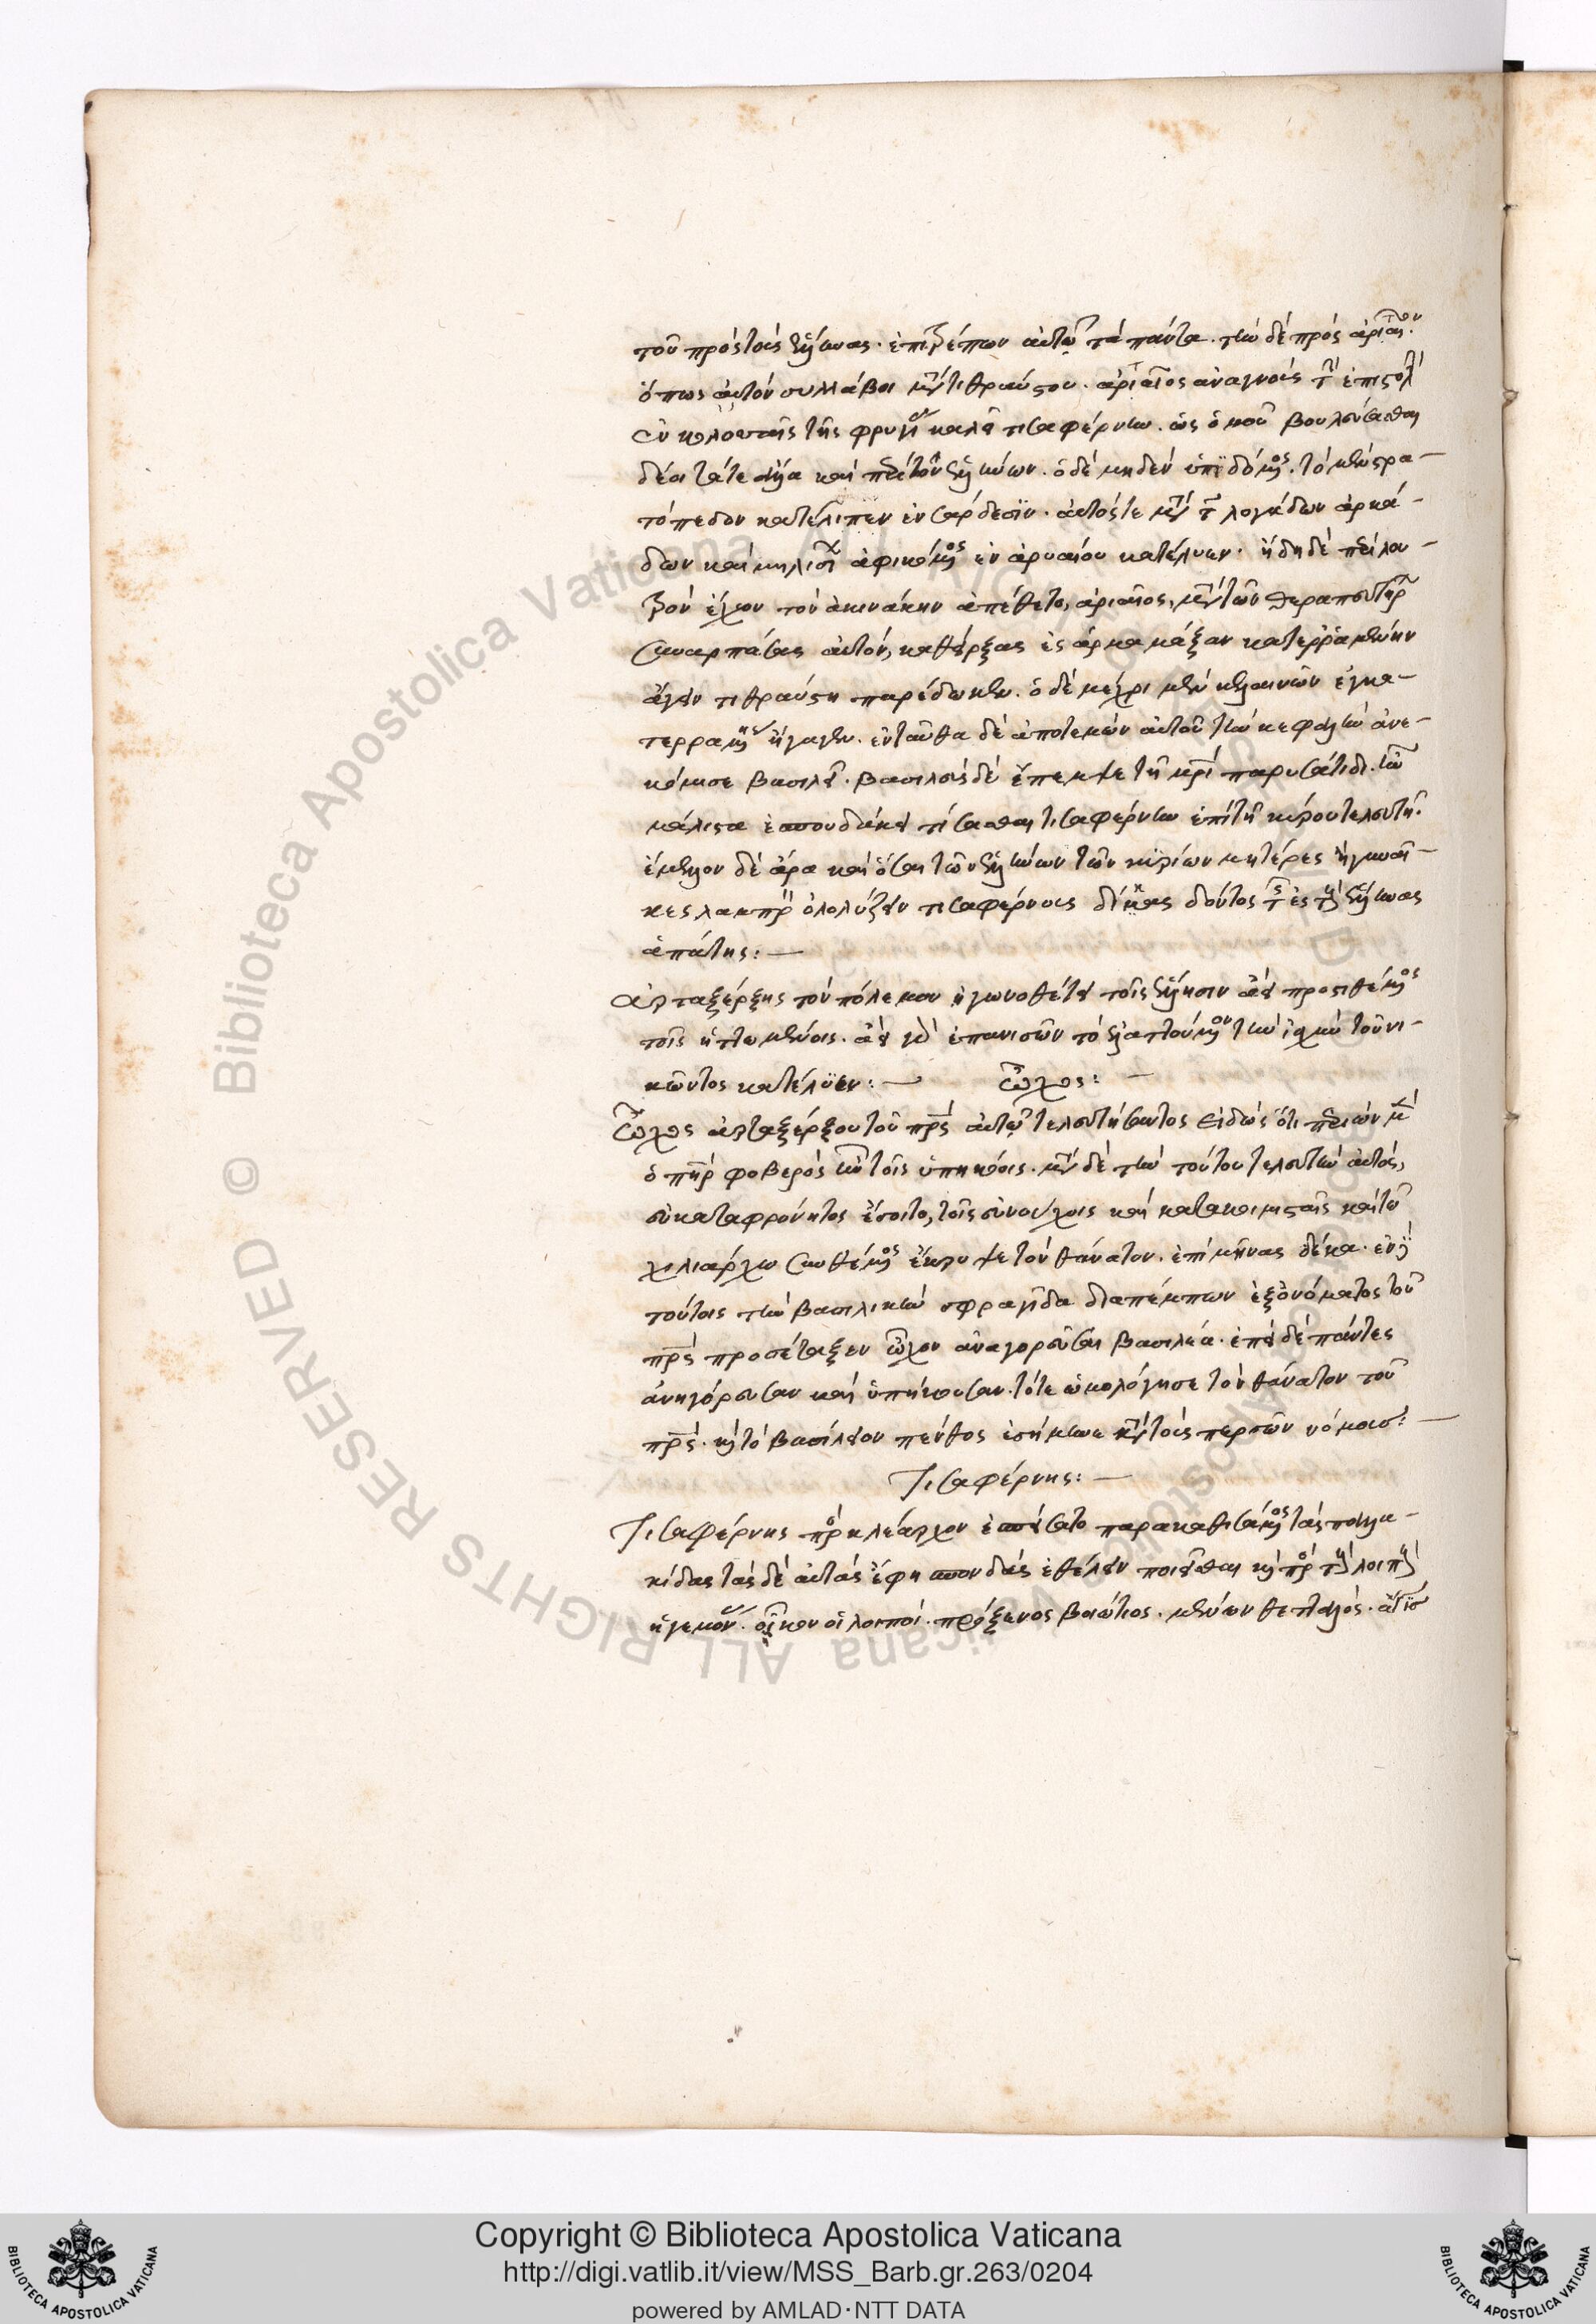 τοῦ πρὸς τοὺς ἕλληνας. ἐπιτρέπων αὐτῷ τὰ πάντα. τὴν δὲ πρὸς ἀριαῖον.
ὅπως αὐτὸν συλλάβοι μετὰ τιθραύστου. ἀριαῖος ἀναγνοὺς τὴν ἐπιστολὴν
ἐν κολοσσαῖς τῆς φρυγίας καλεῖ τισαφέρνην. ὡς ὁμοῦ βουλεύσασθαι
δέοι τά τε ἄλλα καὶ περὶ τῶν ἑλλήνων. ὁ δὲ μηδὲν ὑπιδόμενος. τὸ μὲν στρα-
τόπεδον κατέλιπεν ἐν σάρδεσϊν. αὐτός τε μετὰ τῶν λογάδων ἀρκά-
δων καὶ μιλησίων ἀφικόμενος ἐν ἀρυαίου κατέλυεν. ἤδη δὲ περὶ λου-
τρὸν ἔχων τὸν ἀκινάκην ἀπέθετο, ἀριαῖος, μετὰ τῶν θεραπευτήρων
συναρπάσας αὐτόν, καθείρξας ἐς ἁρμάμαξαν κατερραμμένην
ἄγειν τιθραύστη παρέδωκεν. ὁ δὲ μέχρι μὲν κελαινῶν ἐγκα-
τερραμμένον ἤγαγεν. ἐνταῦθα δὲ ἀποτεμὼν αὐτοῦ τὴν κεφαλὴν ἀνε-
κόμισε βασιλεῖ. βασιλεὺς δὲ ἔπεμψε τῇ μητρὶ παρυσάτιδι.
μάλιστα ἐσπουδάκει τίσασθαι τισαφέρνην ἐπὶ τῇ κύρου τελευτῇ.
ἔμελλον δὲ ἄρα καὶ ὅσαι τῶν ἑλλήνων τῶν κυρίων μητέρες ἢ γυναῖ-
κες λαμπρὸν ὀλολύξειν τισαφέρνους δίκας δόντος τῆς ἐς τοὺς ἕλληνας
ἀπάτης:—
Ἀρταξέρξης τὸν πόλεμον ἠγωνοθέτει τοῖς ἕλλησιν ἀεὶ προστιθέμενος
τοῖς ἡττωμένοις. ἀεὶ γὰρ ἐπανισῶν τὸ ἐλαττούμενον τὴν ἰσχὺν τοῦ νι-
κῶντος κατέλϋεν:— Ὦχος:—
Ὦχος ἀρταξέρξου τοῦ πατρὸς αὐτῷ τελευτήσαντος εἰδὼς ὅτι περιὼν μὲν
ὁ πατὴρ φοβερὸς ἦν τοῖς ὑπηκόοις. μετὰ δὲ τὴν τούτου τελευτὴν αὐτός,
εὐκαταφρόνητος ἔσοιτο, τοῖς εὐνούχοις καὶ κατακοιμισταῖς καὶ τῷ
χιλιάρχῳ συνθέμενος ἔκρυψε τὸν θάνατον. ἐπὶ μῆνας δέκα. ἐν
τούτοις τὴν βασιλικὴν σφραγῖδα διαπέμπων ἐξ ὀνόματος τοῦ
πατρὸς προσέταξεν ὦχον ἀναγορεῦσαι βασιλέα. ἐπεὶ δὲ πάντες
ἀνηγόρευσαν καὶ ὑπήκουσαν. τότε ὡμολόγησε τὸν θάνατον τοῦ
πατρός. καὶ τὸ βασίλειον πένθος ἐσήμηνε κατὰ τοὺς περσῶν νόμους:—
Τισαφέρνης:—
Τισαφέρνης πρὸς κλέαρχον ἐσπείσατο παρακαθισάμενος τὰς παλλα-
κίδας τὰς δὲ αὐτὰς ἔφη σπονδὰς ἐθέλειν ποιεῖσθαι καὶ πρὸς τοὺς λοιποὺς
ἡγεμόνας. ἧκον οἱ λοιποί. πρόξενος βοιώτιος. μένων θετταλός. ἆγις